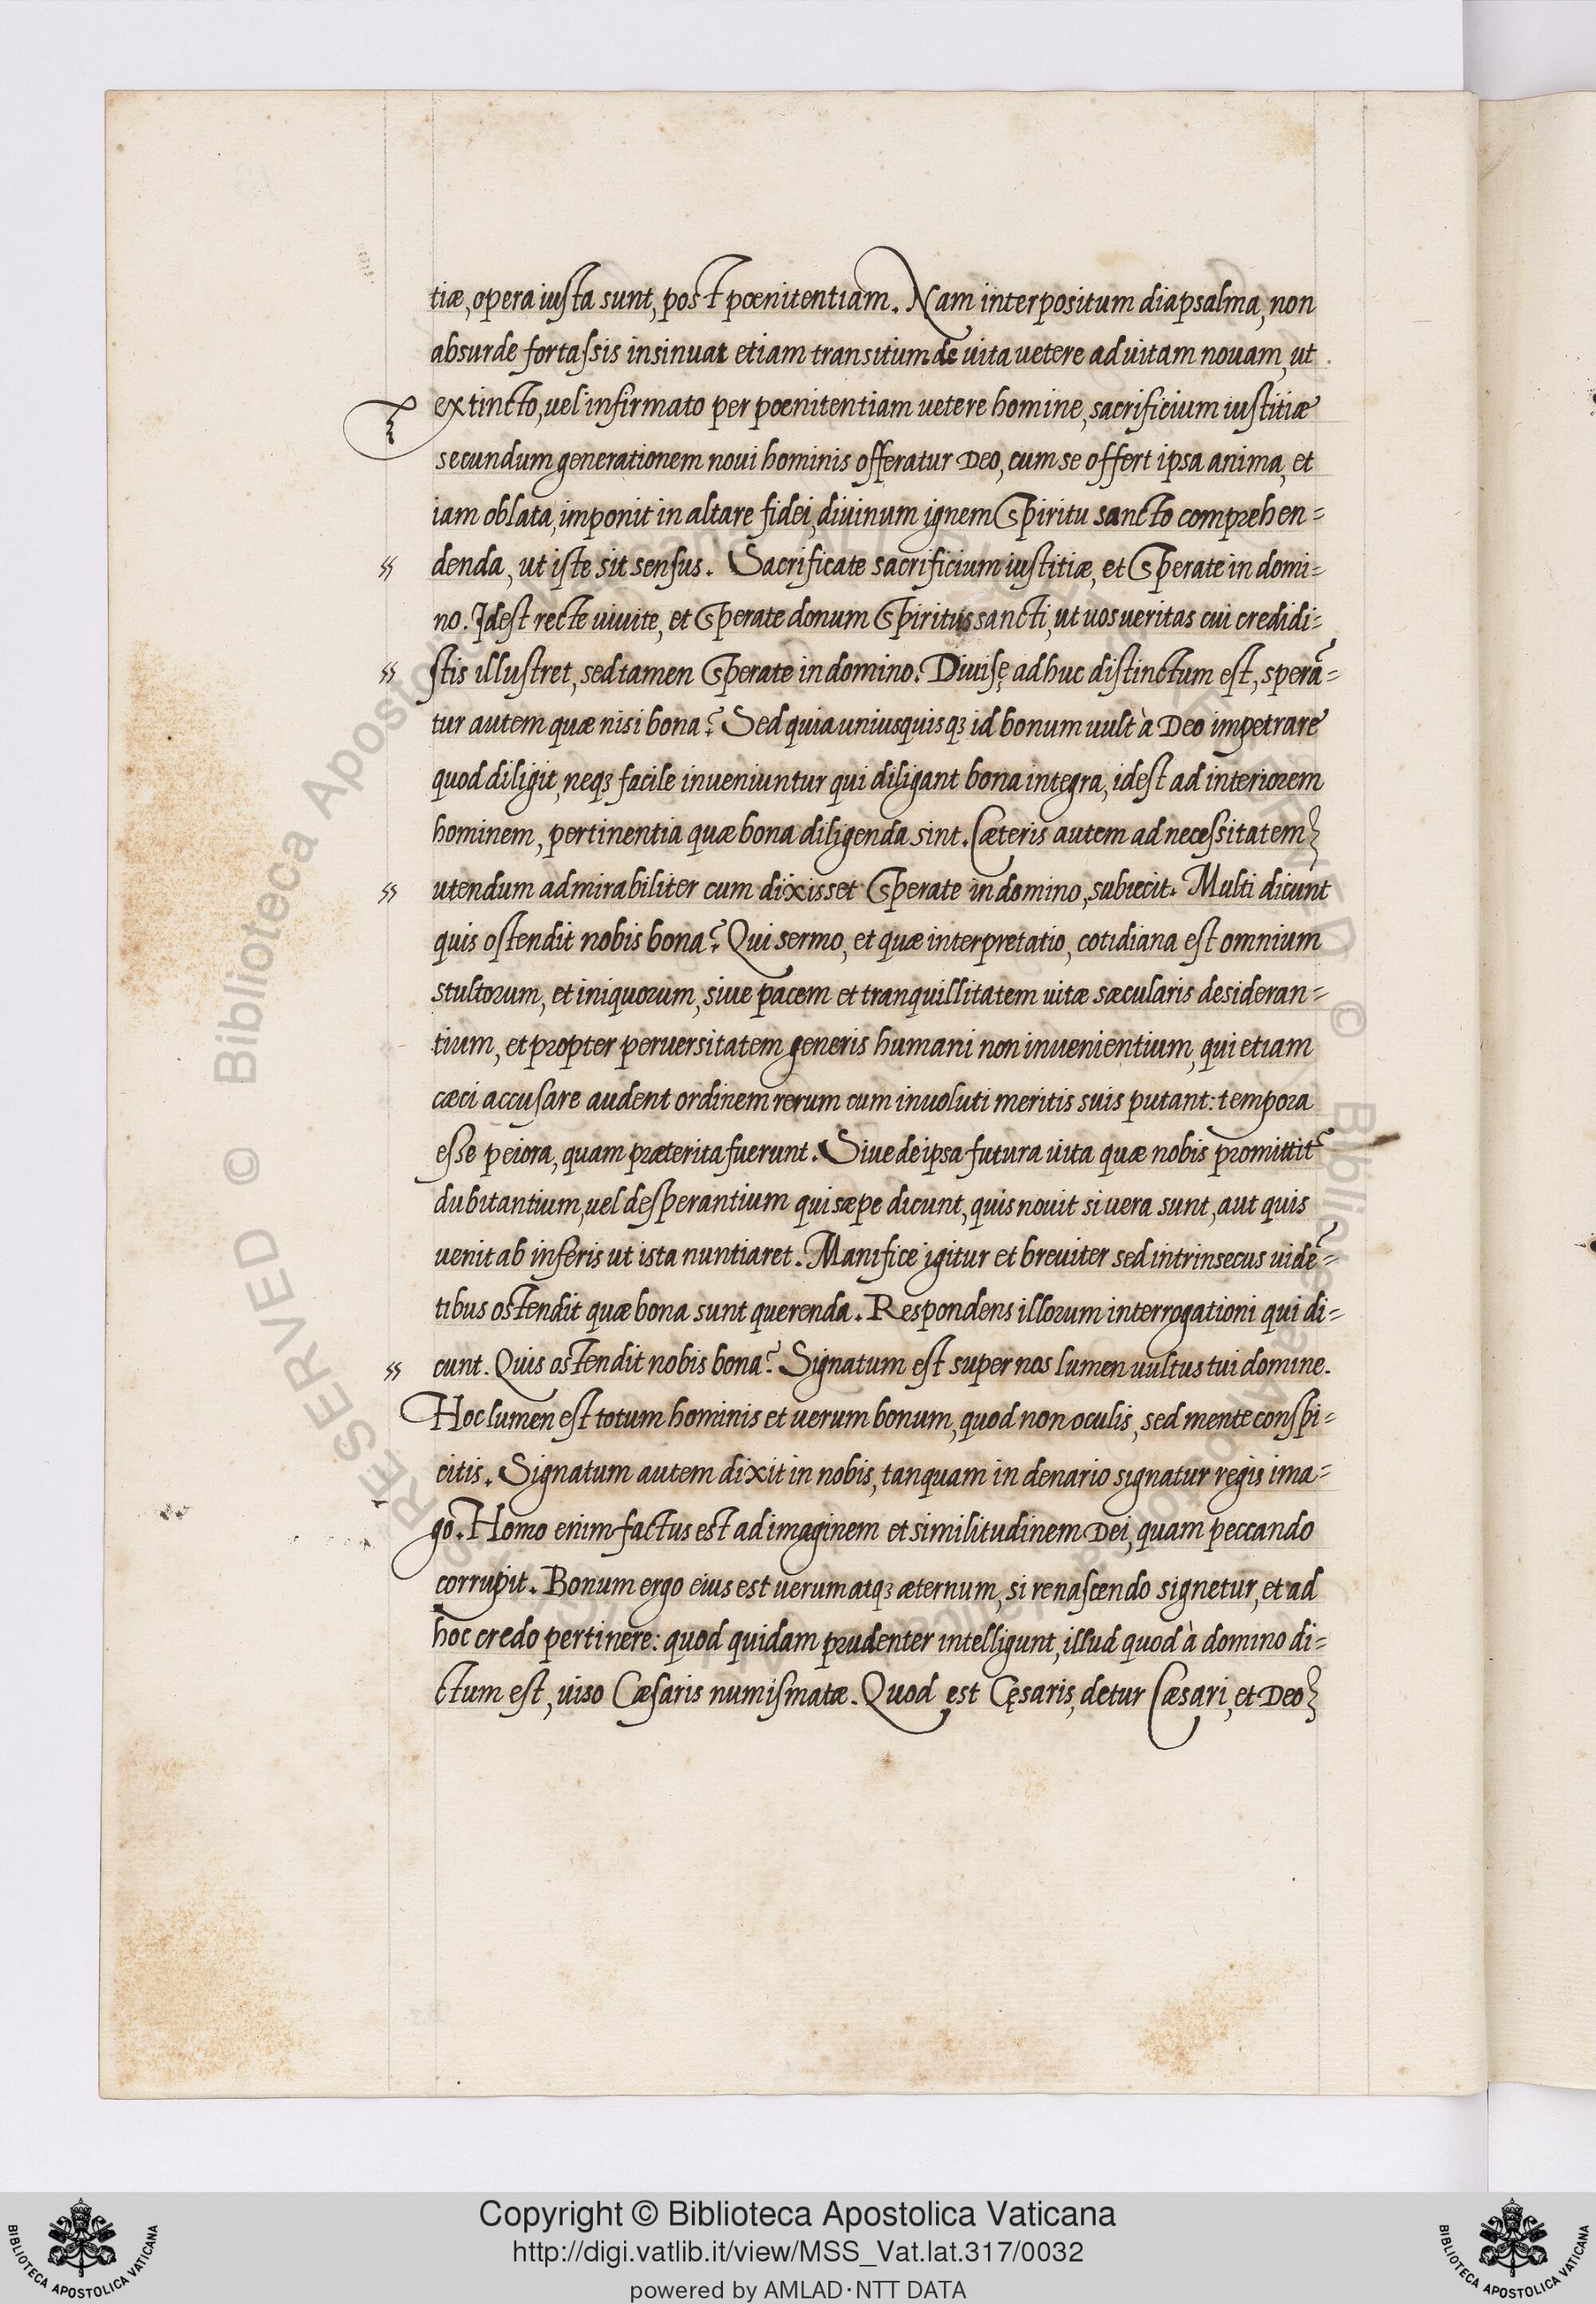 tiæ, opera iusta sunt, post pœnitentiam. Nam interpositum diapsalma, non
absurde fortassis insinuat etiam transitum de uita uetere ad uitam nouam, ut
extincto, uel infirmato per pœnitentiam uetere homine, sacrificium iustitiæ
secundum generationem noui hominis offeratur Deo, cum se offert ipsa anima, et
iam oblata, imponit in altare fidei, diuinum ignem Spiritu sancto comprehen=
denda, ut iste sit sensus. Sacrificate sacrificium iustitiæ, et Sperate in domi=
no. Idest recte uiuite, et Sperate donum Spiritus sancti, ut uos ueritas cui credidi=
stis illustret, sed tamen Sperate in domino. Diuisę adhuc distinctum est, sperã=
tur autem quæ nisi bona? Sed quia uniusquisqꝫ id bonum uult à Deo impetrare
quod diligit, neqꝫ facile inueniuntur qui diligant bona integra, idest ad interiorem
hominem, pertinentia quæ bona diligenda sint. Cæteris autem ad necessitatem
utendum admirabiliter cum dixisset Sperate in domino, subiecit. Multi dicunt
quis ostendit nobis bona? Qui sermo, et quæ interpretatio, cotidiana est omnium
stultorum, et iniquorum, siue pacem et tranquillitatem uitæ sæcularis desideran=
tium, et propter peruersitatem generis humani non inuenientium, qui etiam
cæci accusare audent ordinem rerum cum inuoluti meritis suis putant: tempora
esse peiora, quam præterita fuerunt. Siue de ipsa futura uita quæ nobis promittit᷑
dubitantium, uel desperantium qui sæpe dicunt, quis nouit si uera sunt, aut quis
uenit ab inferis ut ista nuntiaret. Manifice igitur et breuiter sed intrinsecus uidẽ=
tibus ostendit quæ bona sunt querenda. Respondens illorum interrogationi qui di=
cunt. Quis ostendit nobis bona? Signatum est super nos lumen uultus tui domine.
Hoc lumen est totum hominis et uerum bonum, quod non oculis, sed mente conspi=
citis. Signatum autem dixit in nobis, tanquam in denario signatur regis ima=
go. Homo enim factus est ad imaginem et similitudinem Dei, quam peccando
corrupit. Bonum ergo eius est uerum atqꝫ æternum, si renascendo signetur, et ad
hoc credo pertinere: quod quidam prudenter intelligunt, illud quod à domino di=
ctum est, uiso Cæsaris numismatæ. Quod est Cęsaris, detur Cæsari, et Deo
Copyright © Biblioteca Apostolica Vaticana
http://digi.vatlib.it/view/MSS_Vat.lat.317/0032
powered by AMLAD·NTT DATA
BIBLIOTECA APOSTOLICA VATICANA
BIBLIOTECA APOSTOLICA VATICANA